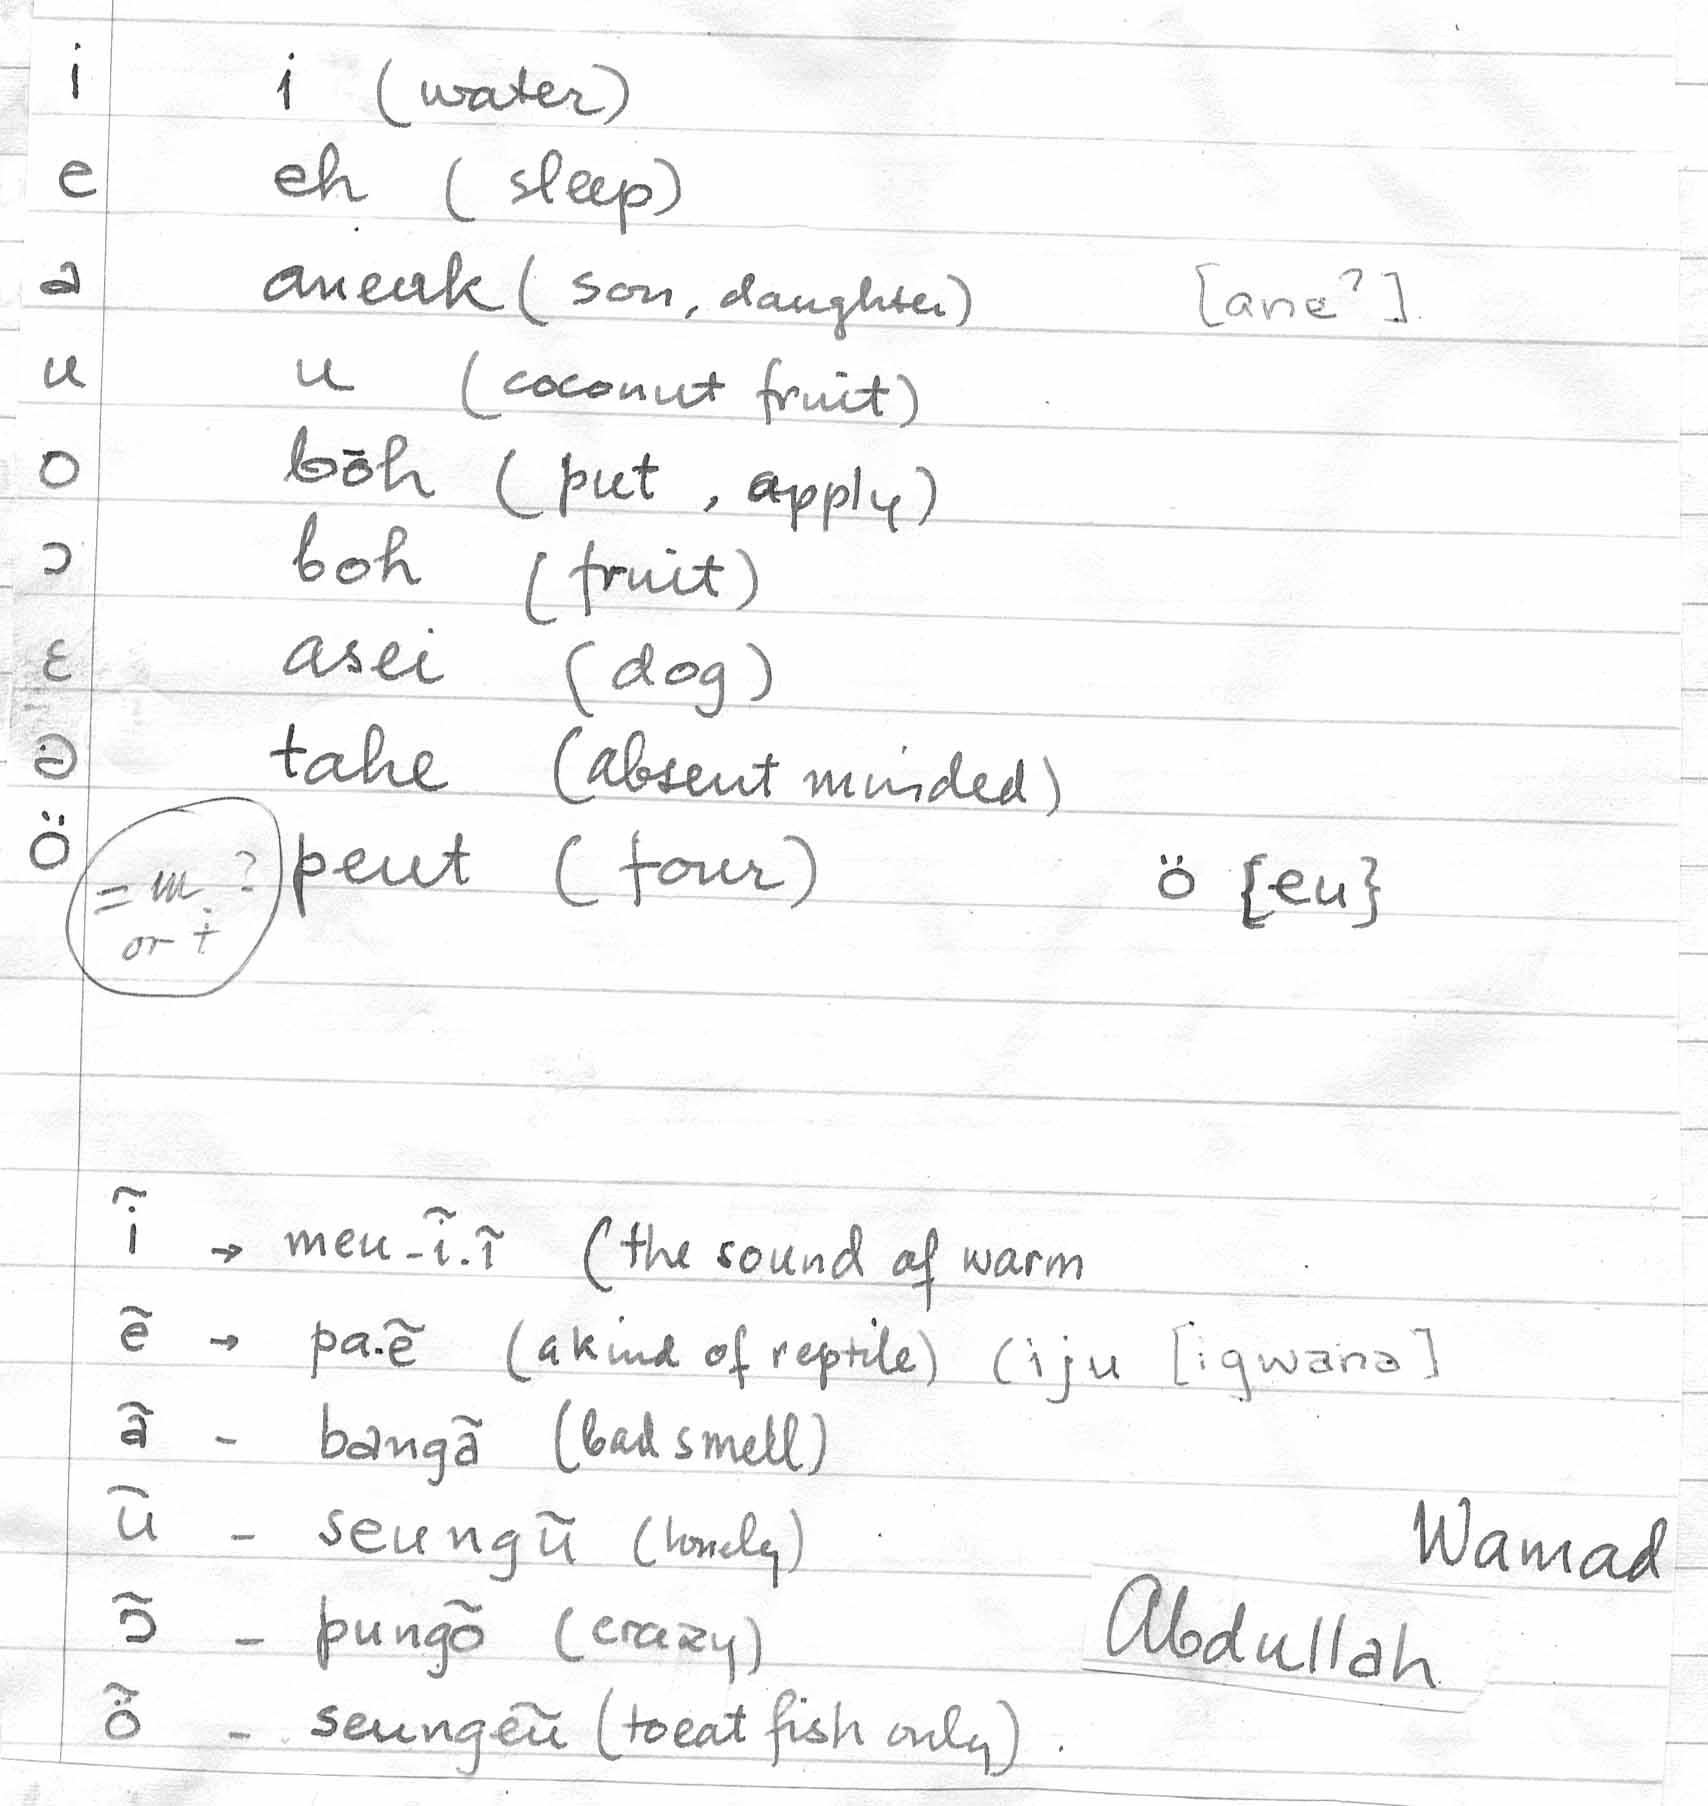 i i (water)
e eh (sleep)
a aneuk (son, daughter) [aneʔ]
u u (coconut fruit)
o bōh (put, apply)
ɔ boh (fruit)
ε asei (dog)
ə tahe (absent minded)
ö peut (four) ö {eu}
= ɯ ?
or ɨ
ĩ → meu-ĩ.ĩ (the sound of warm
ẽ → pa.ẽ (a kind of reptile) (iju [igwana]
ã - bangã (bad smell)
ũ - seungũ (lonely)
ɔ̃ - pungõ (crazy)
ö̃ - seungeũ (to eat fish only).
Wamad
Abdullah